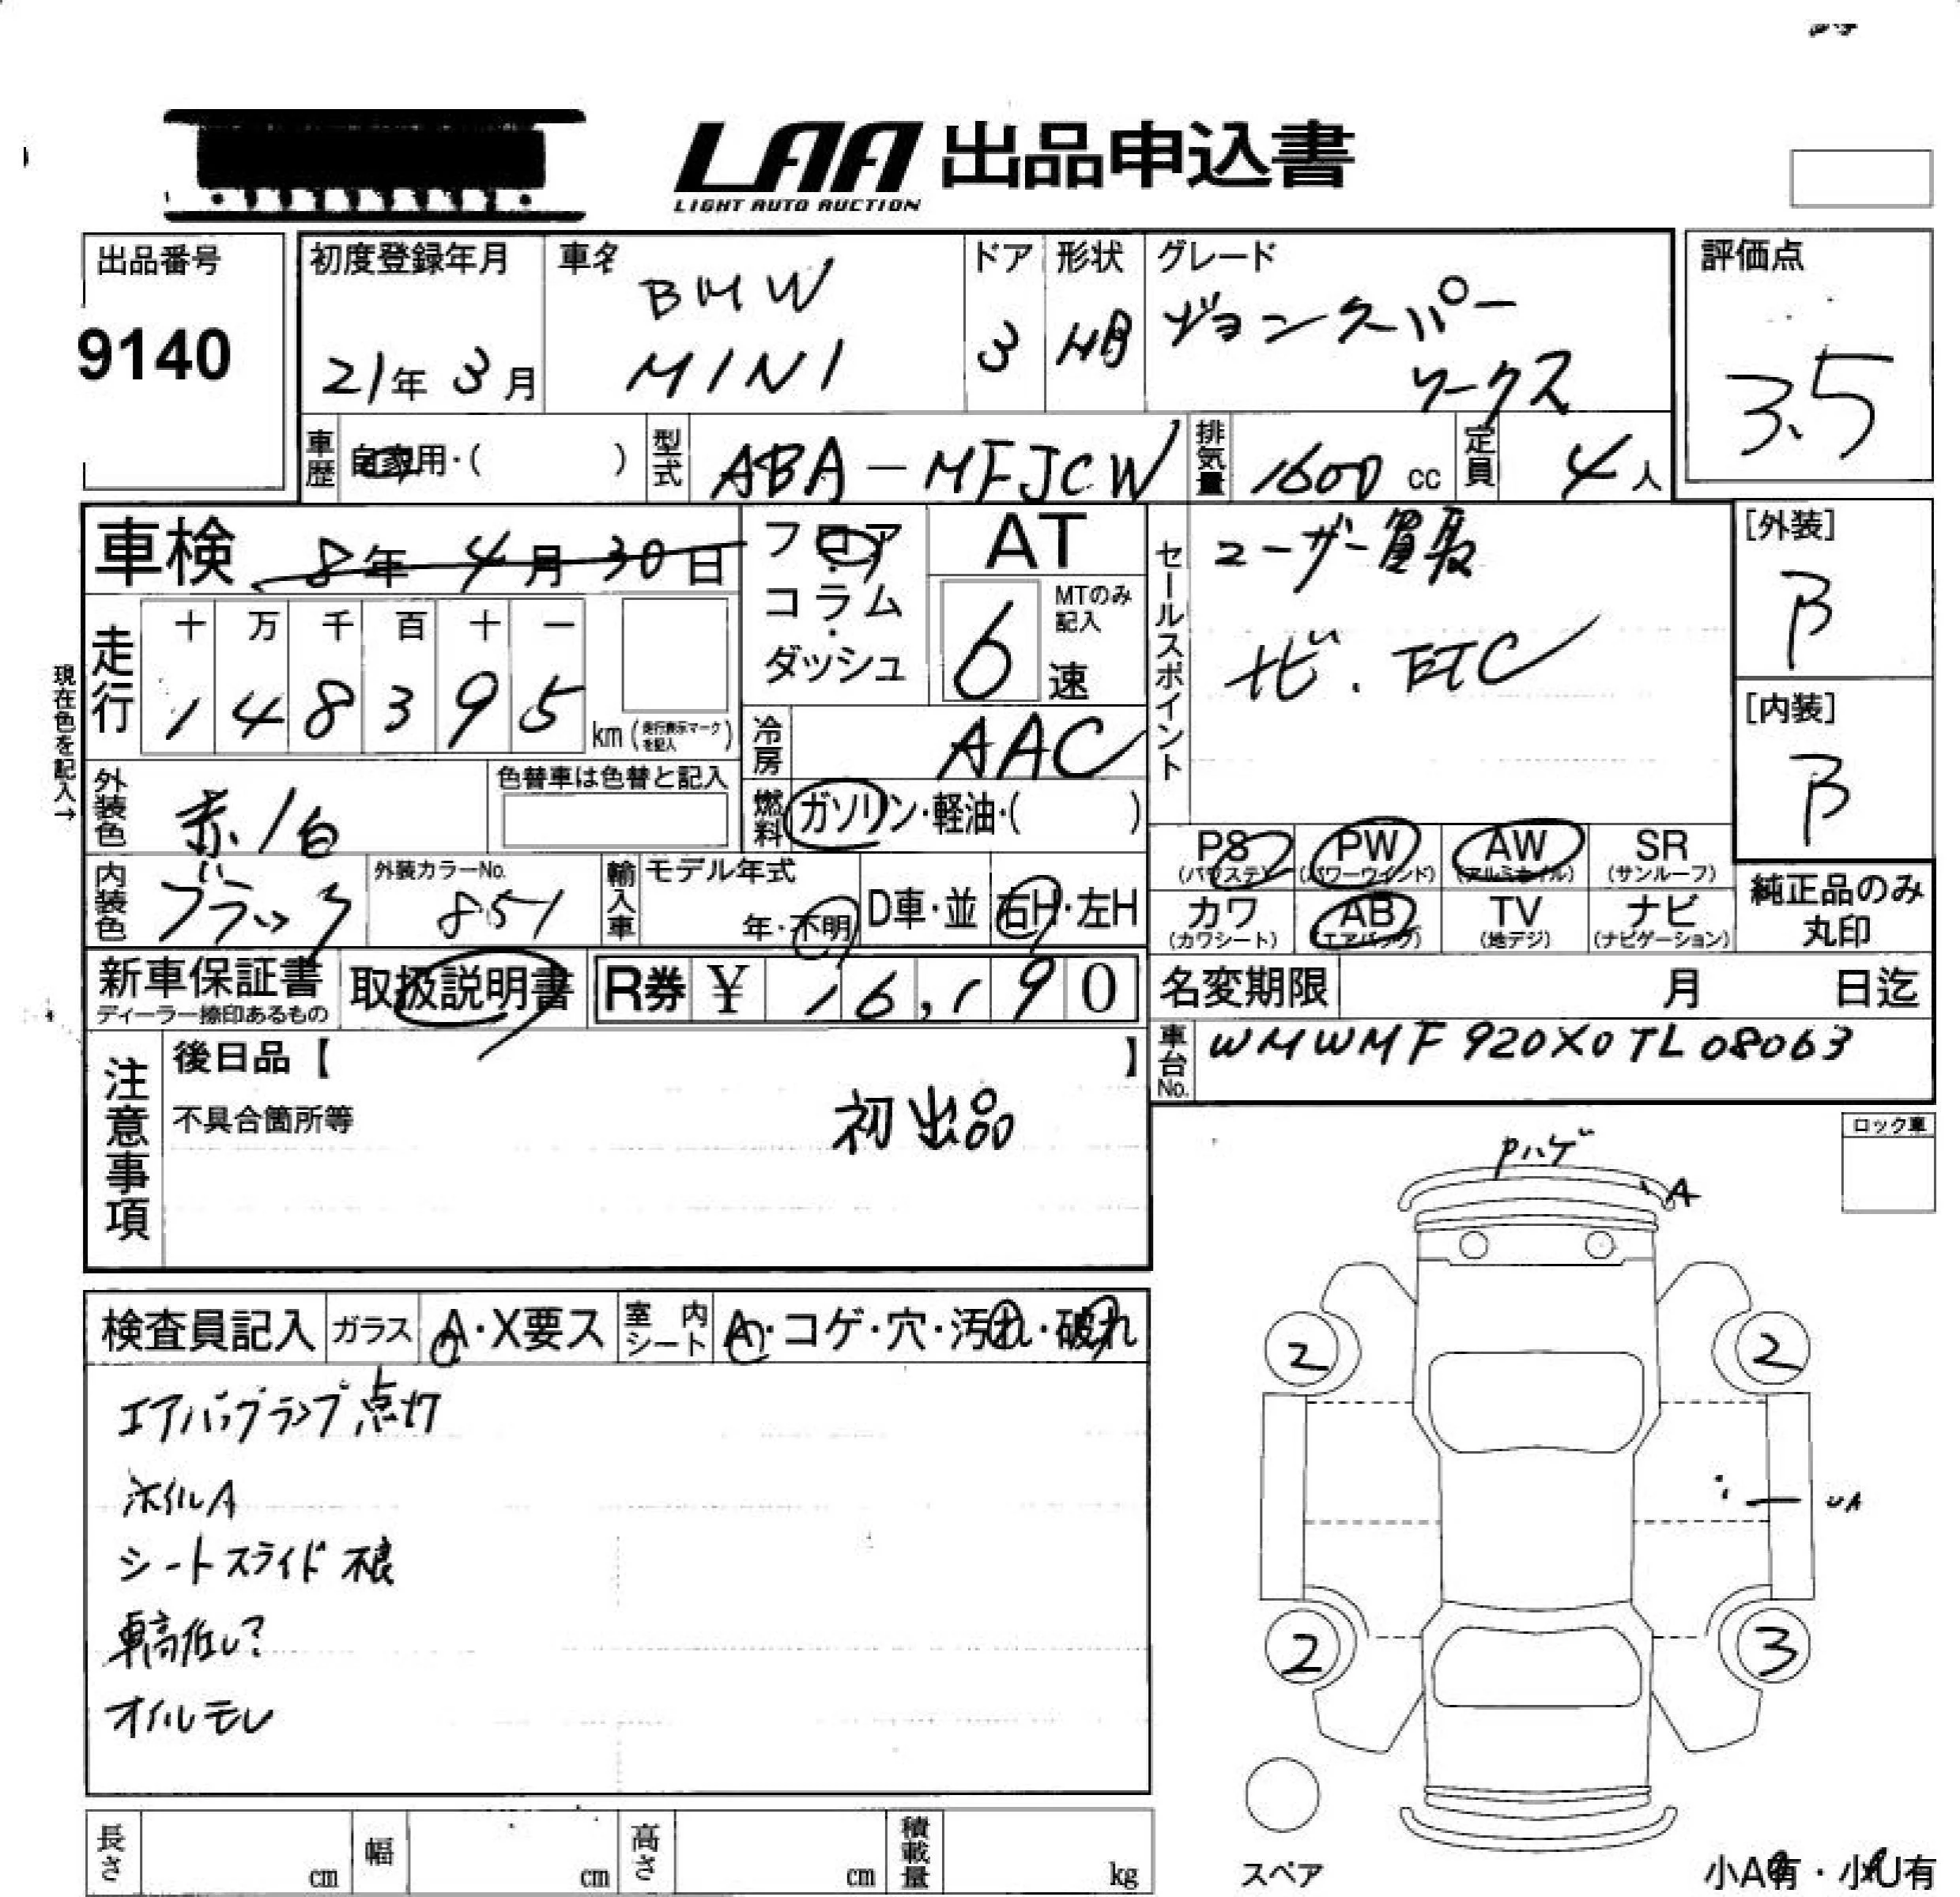 LAA 出品申込書
LIGHT AUTO AUCTION
出品番号
9140
初度登録年月
21年 3月
車名
BMW
MINI
ドア
3
形状
HB
グレード
ジョンクーパー
ワークス
評価点
3.5
車歴 自家用・( )
型式 ABA-MFJCW
排気量 1600 cc
定員 4 人
車検 8年 4月 30日
走行 十 万 千 百 十 一
1 4 8 3 9 5 km (走行表示マークを記入)
現在色を記入→
外装色 赤/白
色替車は色替と記入
内装色 ブラック
外装カラーNo.
851
フロア・コラム・ダッシュ
AT
6 速
MTのみ記入
冷房 AAC
燃料 ガソリン・軽油・( )
輸入車 モデル年式
年・不明
D車・並
右H・左H
セールスポイント
ユーザー買取
ナビ.ETC
[外装]
B
[内装]
B
PS (パワステ)
PW (パワーウインド)
AW (アルミホイル)
SR (サンルーフ)
カワ (カワシート)
AB (エアバッグ)
TV (地デジ)
ナビ (ナビゲーション)
純正品のみ
丸印
新車保証書
ディーラー捺印あるもの
取扱説明書
R券 ¥ 16,190
名変期限 月 日迄
車台No. WMWMF920X0TL08063
注意事項
後日品【 】
不具合箇所等
初出品
ロック車
Pハゲ
A
検査員記入
ガラス A・X要ス
室内シート A・コゲ・穴・汚れ・破れ
エアバッグランプ点灯
ホイルA
シートスライド不良
車高低い?
オイルモレ
2
2
UA
2
3
スペア
小A有・小U有
長さ cm
幅 cm
高さ cm
積載量 kg